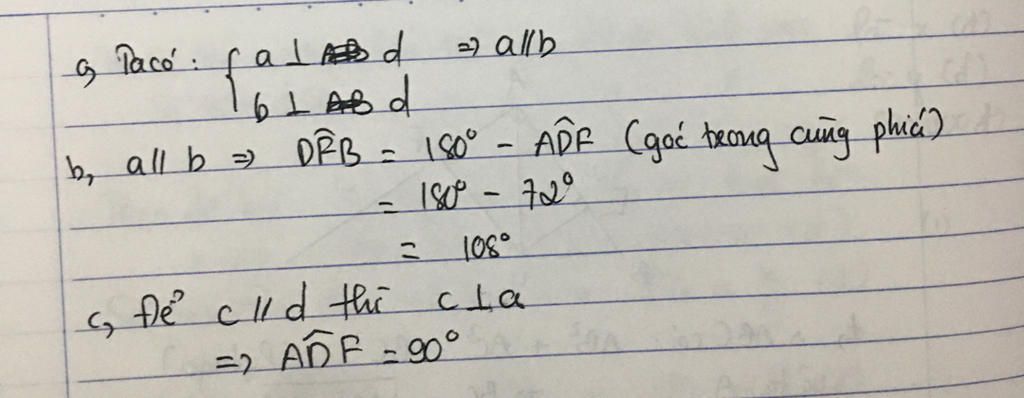 a, Ta có: { a ⊥ d => a//b
b ⊥ d
b, a//b => DF̂B = 180° - AD̂F (góc trong cùng phía)
= 180° - 72°
= 108°
c, Để c // d thì c ⊥ a
=> AD̂F = 90°